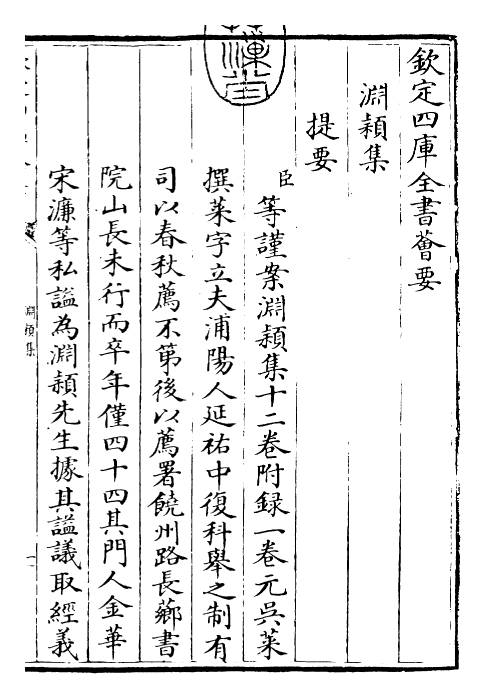 欽定四庫全書薈要
淵頴集
提要
臣等謹案淵頴集十二卷附録一卷元吳萊
撰萊字立夫浦陽人延祐中復科舉之制有
司以春秋薦不第後以薦署饒州路長薌書
院山長未行而卒年僅四十四其門人金華
宋濂等私謚為淵頴先生據其謚議取經義
淵頴集
一